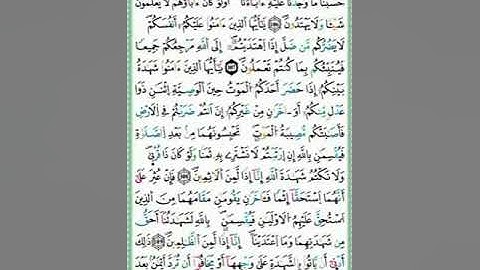 حسبنا ما وجدنا عليه ءاباءنا أولو كان ءاباؤهم لا يعلمون
شيئا ولا يهتدون يأيها الذين ءامنوا عليكم أنفسكم
لا يضركم من ضل إذا اهتديتم إلى الله مرجعكم جميعا
فينبئكم بما كنتم تعملون يأيها الذين ءامنوا شهدة
بينكم إذا حضر أحدكم الموت حين الوصية اثنن ذوا
عدل منكم أو اخرن من غيركم إن أنتم ضربتم في الارض
فأصبتكم مصيبة الموت تحبسونهما من بعد الصلوة
فيقسمن بالله إن ارتبتم لا نشتري به ثمنا ولو كان ذا قربى
ولا نكتم شهدة الله إنا إذا لمن الاثمين فإن عثر على
أنهما استحقا إثما فـاخرن يقومن مقامهما من الذين
استحق عليهم الاولين فيقسمن بالله لشهدتنا أحق
من شهدتهما وما اعتدينا إنا إذا لمن الظلمين ذلك
أدنى أن ياتوا بالشهدة على وجهها أو يخافوا أن ترد أيمن بعد